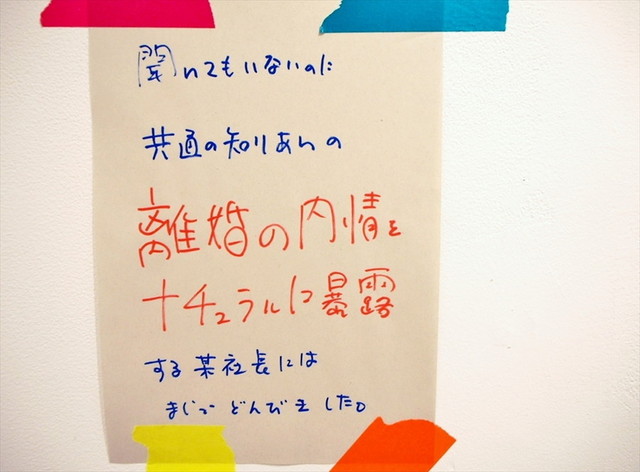 聞いてもいないのに
共通の知りあいの
離婚の内情を
ナチュラルに暴露
する某社長には
まじっ どんびきました。